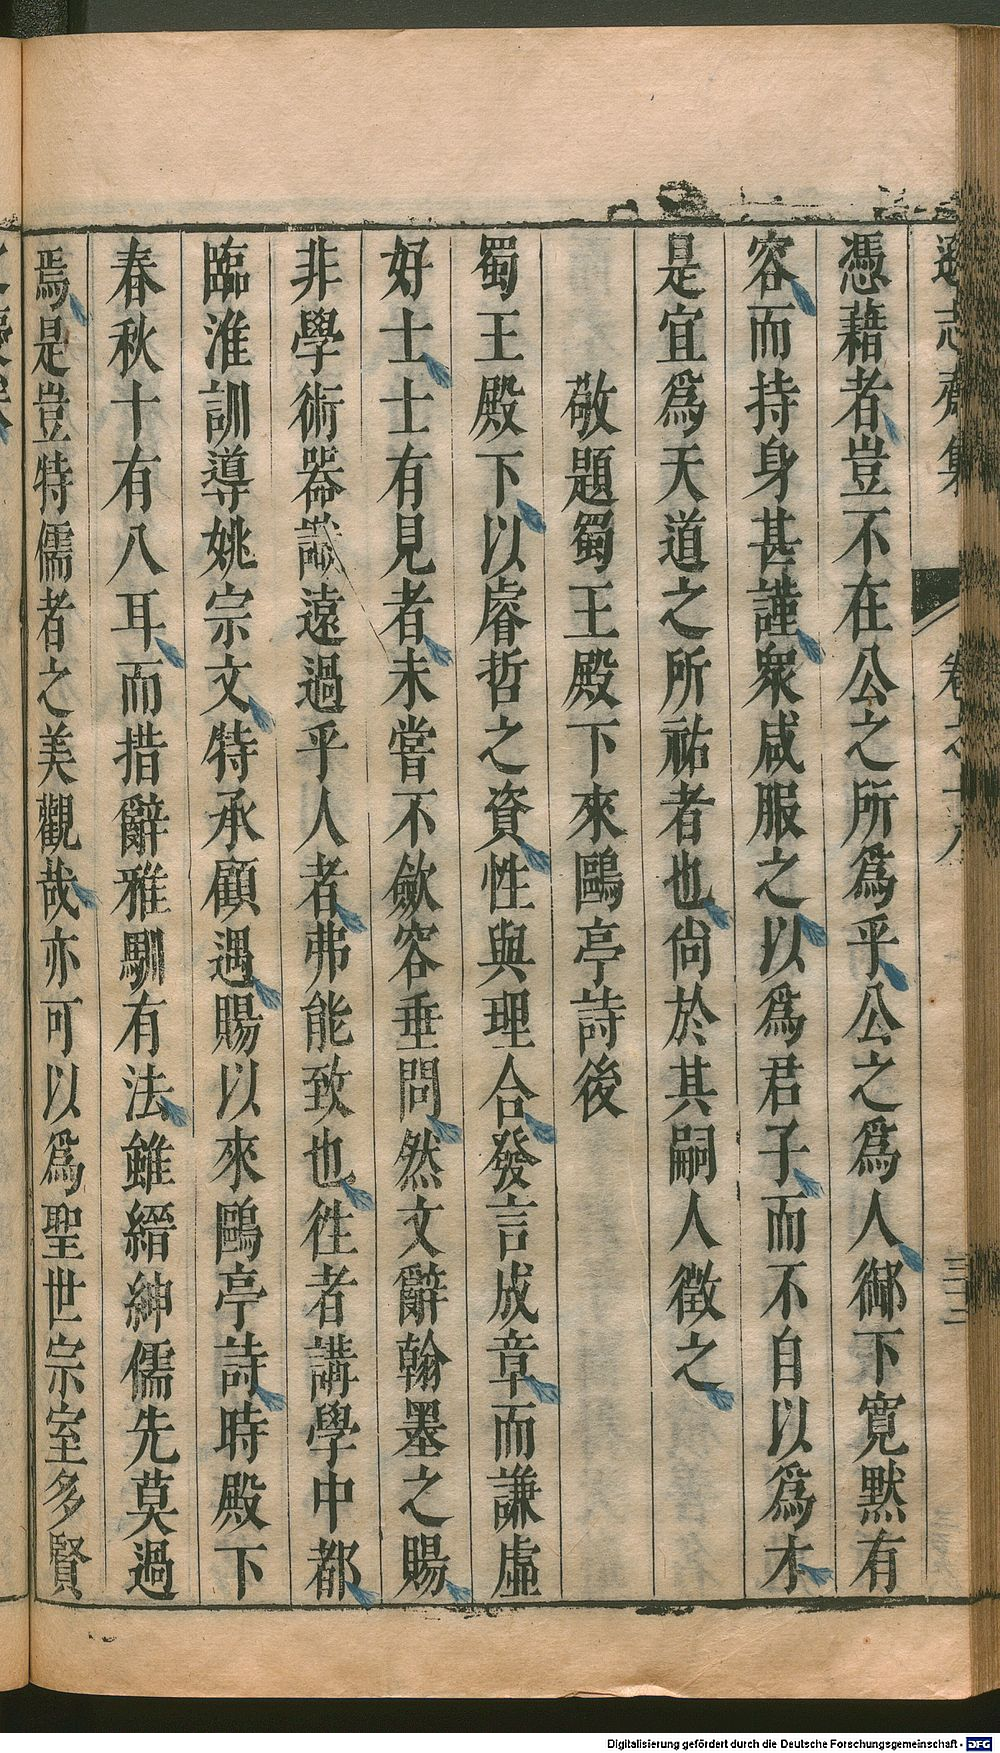 遜志齋集 卷之十八 三十二
憑藉者豈不在公之所爲乎公之爲人御下寬默有
容而持身甚謹衆咸服之以爲君子而不自以爲才
是宜爲天道之所祐者也尙於其嗣人徵之
敬題蜀王殿下來鷗亭詩後
蜀王殿下以睿哲之資性與理合發言成章而謙虛
好士士有見者未嘗不斂容垂問然文辭翰墨之賜
非學術器識遠過乎人者弗能致也往者講學中都
臨淮訓導姚宗文特承顧遇賜以來鷗亭詩時殿下
春秋十有八耳而措辭雅馴有法雖縉紳儒先莫過
焉是豈特儒者之美觀哉亦可以爲聖世宗室多賢
Digitalisierung gefördert durch die Deutsche Forschungsgemeinschaft - DFG